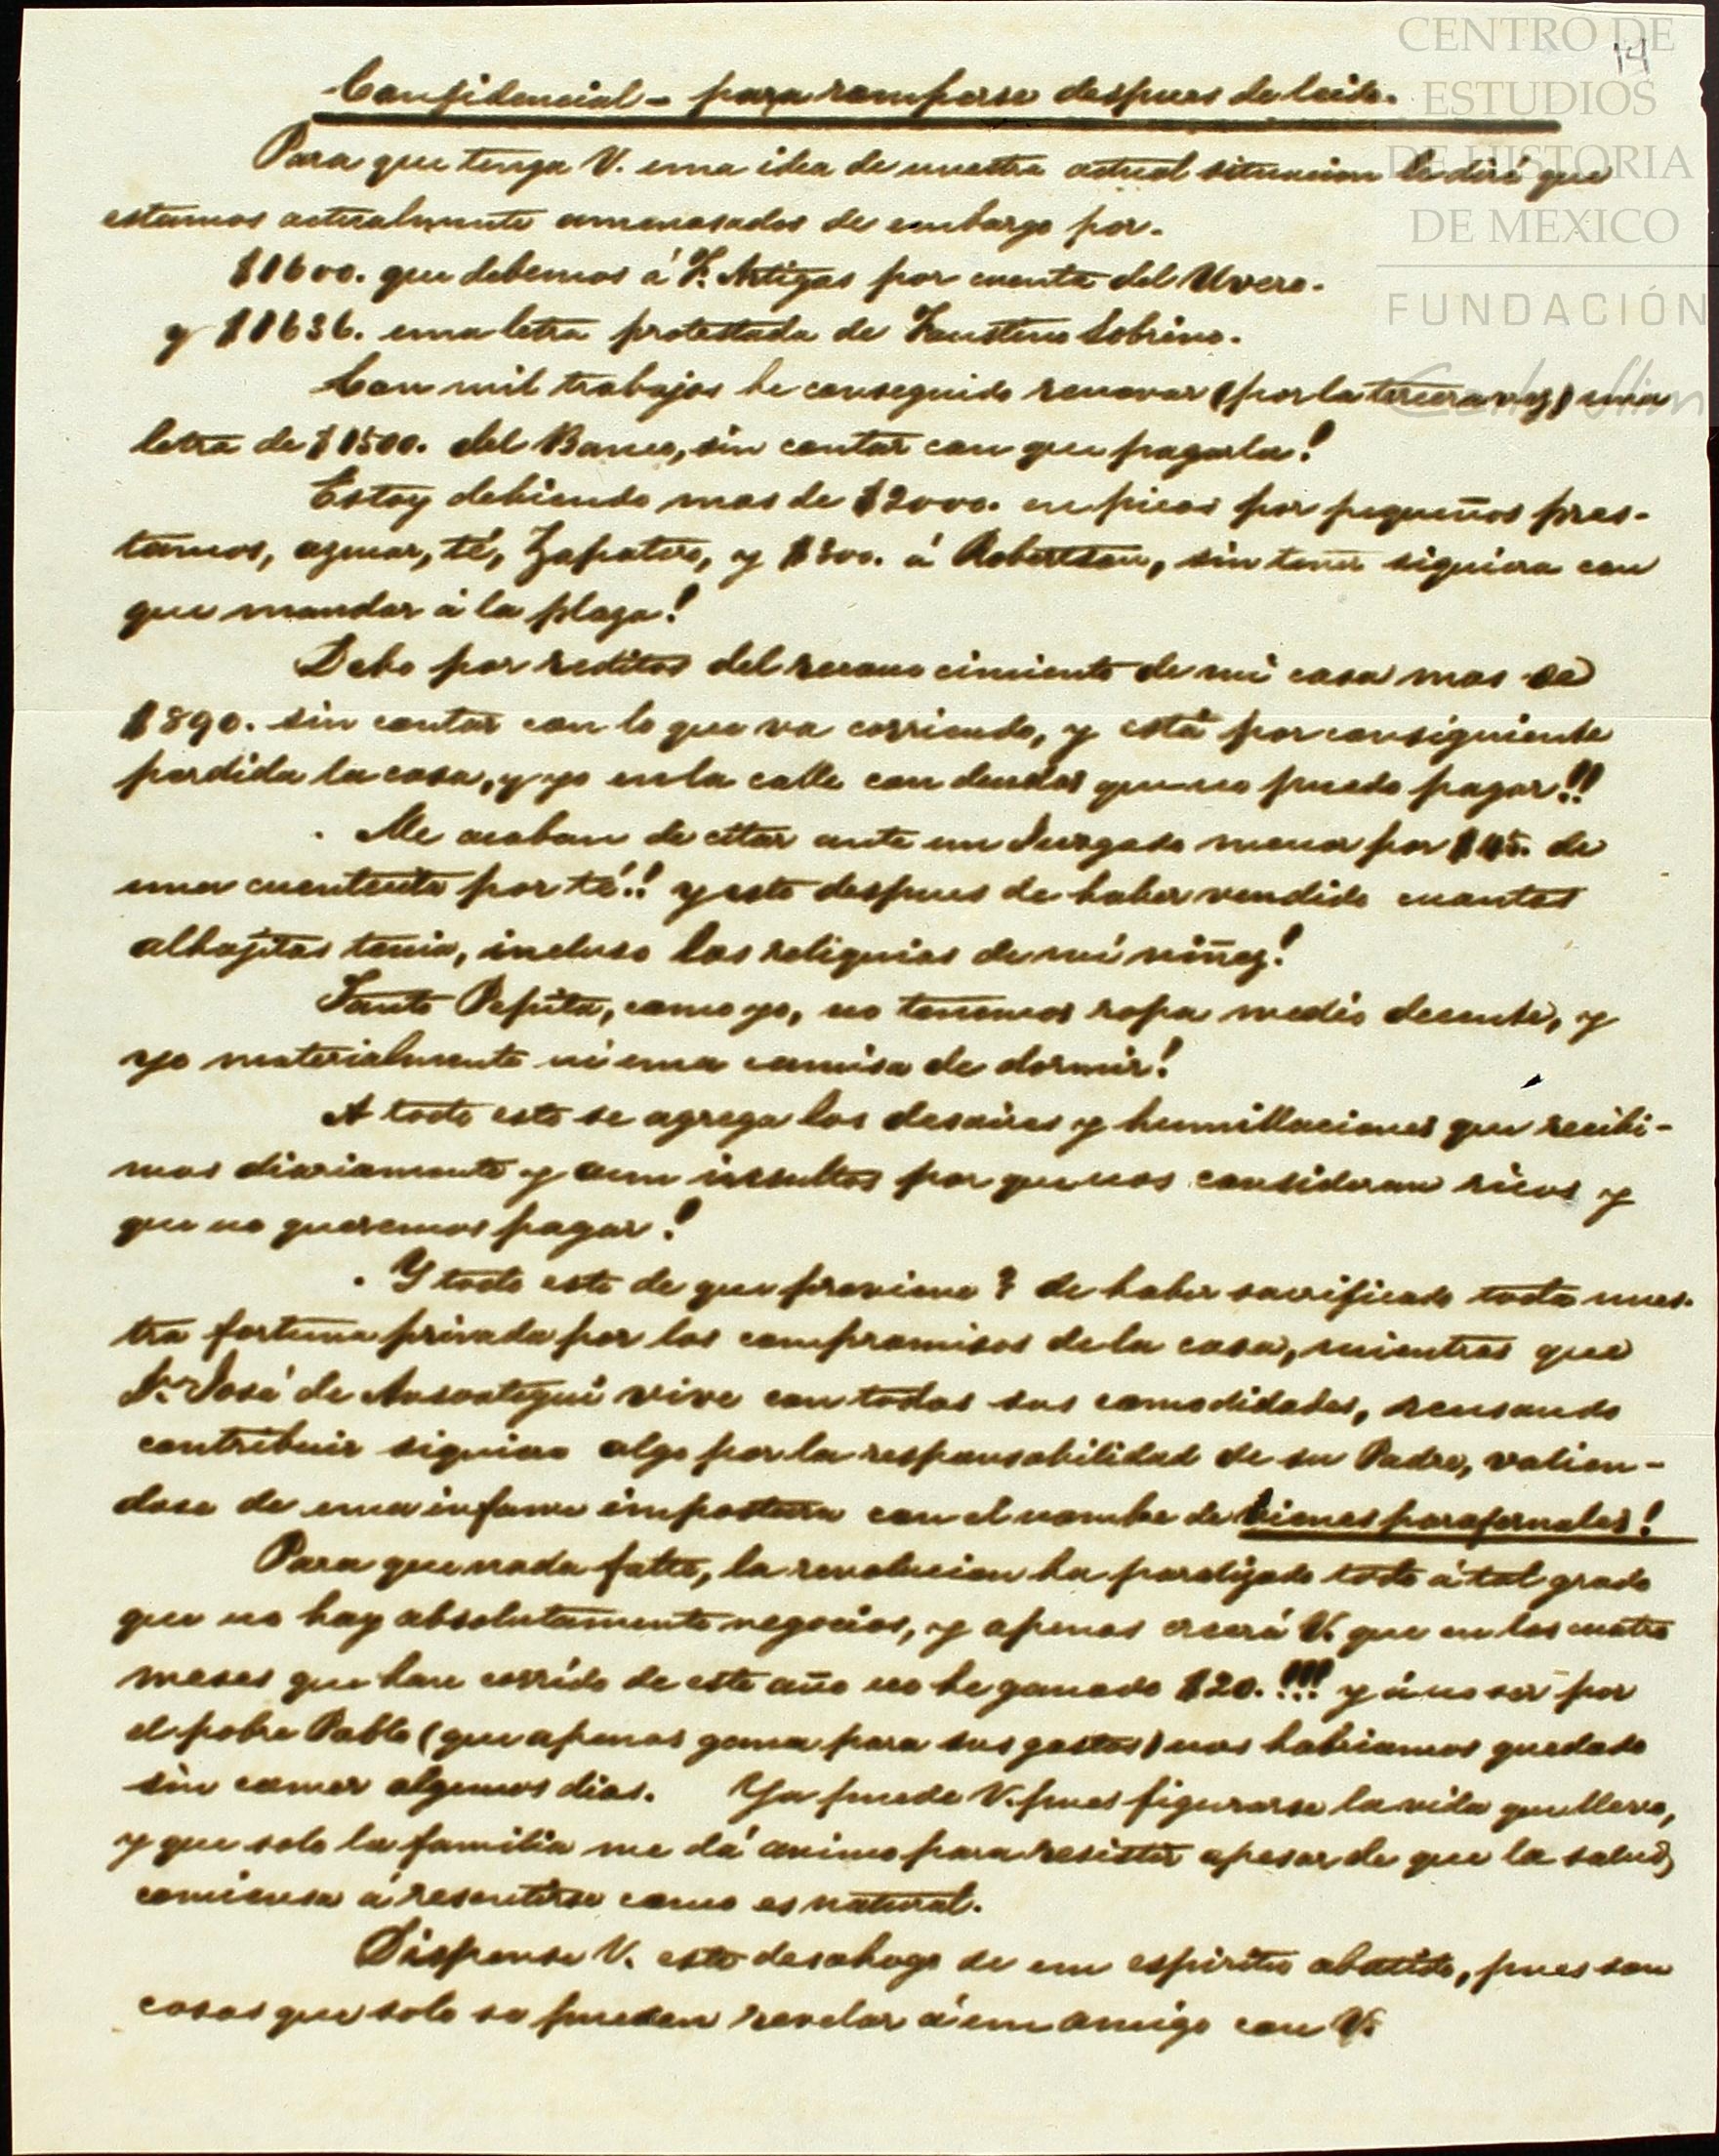 CENTRO DE
ESTUDIOS
DE HISTORIA
DE MEXICO
FUNDACIÓN
Carlos Slim
14
Confidencial - para romperse despues de leida.
Para que tenga V. una idea de nuestra actual situacion le diré que
estamos actualmente amenasados de embargo por.
$1600. que debemos á F. Artigas por cuenta del Uvero.
y $1636. una letra protestada de Faustino Sobrino.
Con mil trabajos he conseguido renovar (por la tercera vez) una
letra de $1500. del Banco, sin contar con que pagarla!
Estoy debiendo mas de $2000. en picos por pequeños pres-
tamos, azucar, té, Zapatero, y $300. á Robertson, sin tener siquiera con
que mandar á la plaza!
Debo por reditos del reconocimiento de mi casa mas de
$890. sin contar con lo que va corriendo, y está por consiguiente
perdida la casa, y yo en la calle con deudas que no puedo pagar!!
Me acaban de citar ante un Juzgado menor por de
una cuentecita por té!! y esto despues de haber vendido cuantas
alhajitas tenia, incluso las reliquias de mi niñez!
Tanto Pepita, como yo, no tenemos ropa medio decente, y
yo materialmente ni una camisa de dormir!
A todo esto se agrega los desaires y humillaciones que recibi-
mos diariamente y aun insultos por que nos consideran ricos y
que no queremos pagar!
Y todo esto de que proviene? de haber sacrificado toda nues-
tra fortuna privada por los compromisos de la casa, mientras que
Dn José de Ansoategui vive con todas sus comodidades, reusando
contribuir siquiera algo por la responsabilidad de su Padre, valien-
dose de una infame impostura con el nombre de bienes parafernales!
Para que nada falte, la revolucion ha paralizado todo á tal grado
que no hay absolutamente negocios, y apenas creerá V. que en los cuatro
meses que han corrido de este año no he ganado $20.!!! y á no ser por
el pobre Pablo (que apenas gana para sus gastos) nos habriamos quedado
sin comer algunos dias. Ya puede V. pues figurarse la vida que llevo,
y que solo la familia me dá animo para resistir apesar de que la salud
comiensa á resentirse como es natural.
Dispense V. este desahogo de un espiritu abatido, pues son
cosas que solo se pueden revelar á un amigo con V.